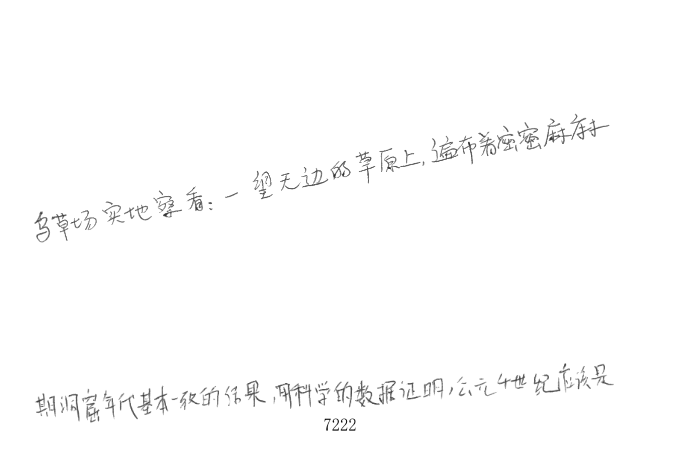 乌草场实地察看:一望无边的草原上,遍布着密密麻麻
期洞窟年代基本一致的结果,用科学的数据证明,公元4世纪应该是
7222